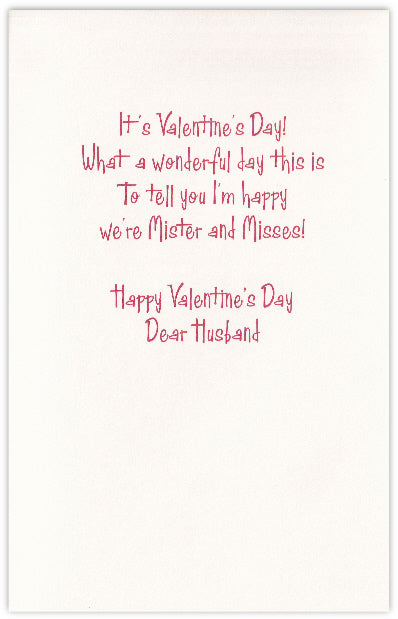 It's Valentine's Day!
What a wonderful day this is
To tell you I'm happy
we're Mister and Misses!
Happy Valentine's Day
Dear Husband